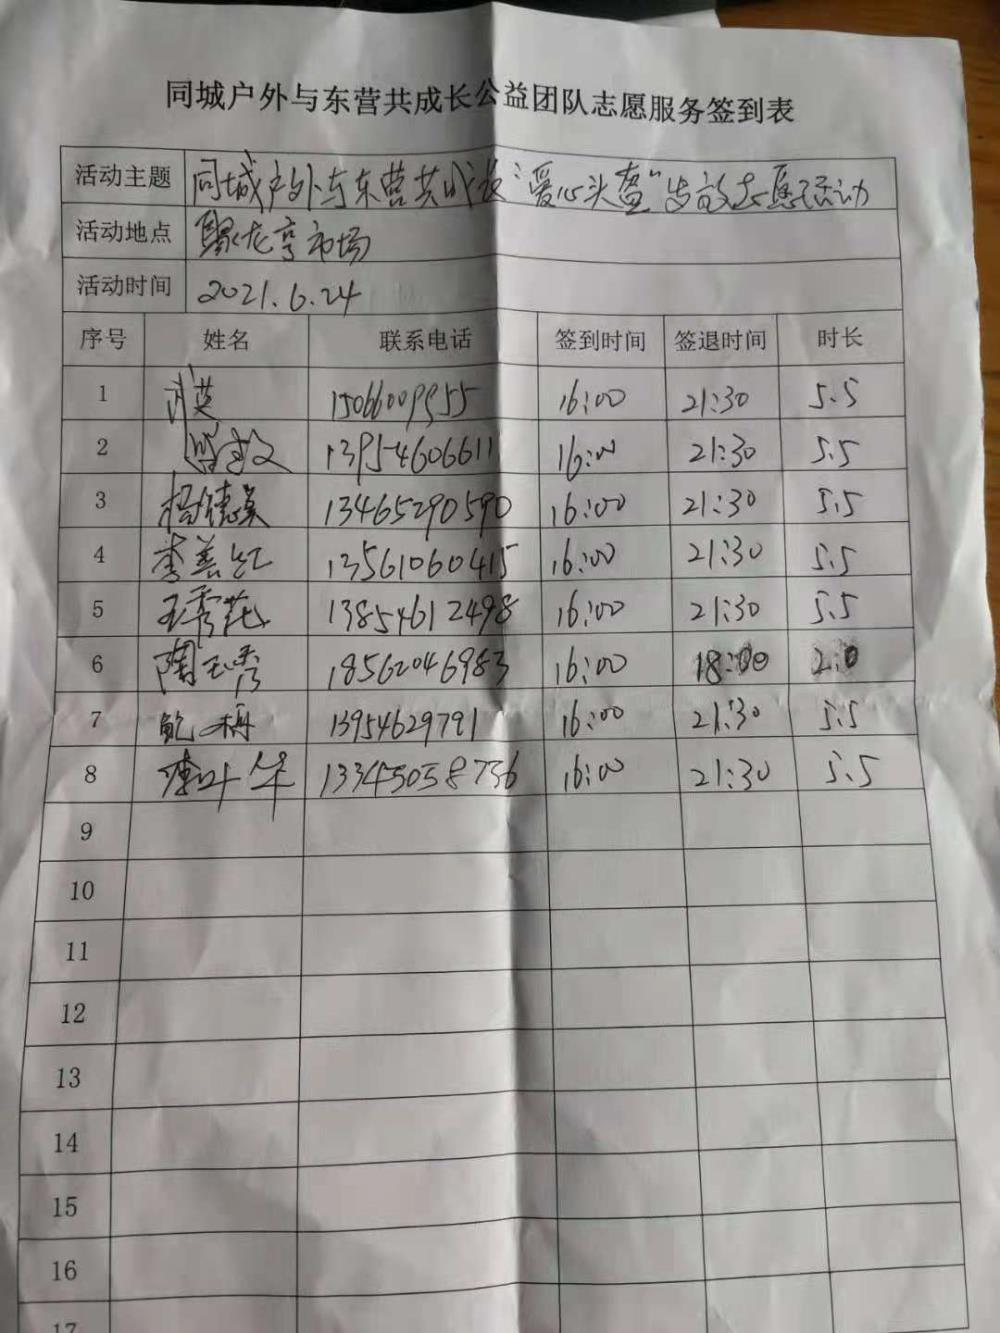 同城户外与东营共成长公益团队志愿服务签到表
活动主题 同城户外与东营共成长"爱心头盔"发放志愿活动
活动地点 聚龙亭市场
活动时间 2021.6.24
序号 姓名 联系电话 签到时间 签退时间 时长
1 英 15066009955 16:00 21:30 5.5
2 敏 13954606611 16:00 21:30 5.5
3 杨德英 13465290590 16:00 21:30 5.5
4 李美红 13561060415 16:00 21:30 5.5
5 王秀花 13854612498 16:00 21:30 5.5
6 陶玉秀 18562046983 16:00 18:00 2.0
7 鲍梅 13954629791 16:00 21:30 5.5
8 叶华 13345058756 16:00 21:30 5.5
9
10
11
12
13
14
15
16
17